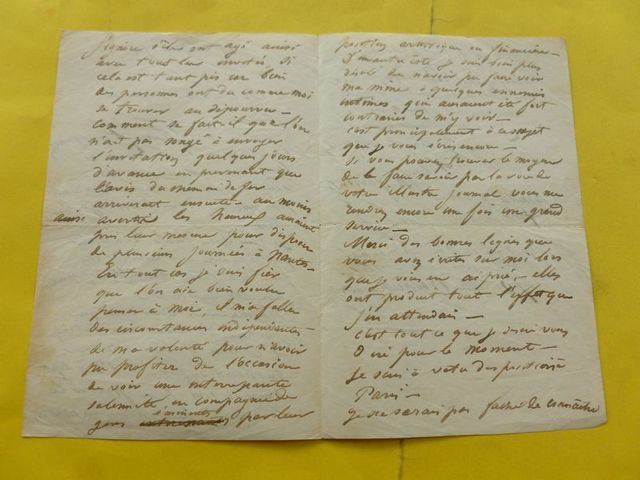 j'ignore s'ils ont agi ainsi
avec tous leurs invités, si
cela est tant pis car bien
des personnes ont du comme moi
se trouver au dépourvu —
comment se fait-il que l'on
n'ait pas songé à envoyer
l'invitation quelques jours
d'avance en prevenant que
l'avis du chemin de fer
arriverait ensuite — au moins
ainsi avertis les heureux auraient
pris leur mesure pour disposer
de plusieurs journées à
En tout cas je suis fier
que l'on aie bien voulu
penser à moi, il m'a fallu
des circonstances indépendantes
de ma volonté pour n'avoir
pu profiter de l'occasion
de voir une intéressante
solemnité en compagnie de
gens éminents par leur
position artistique ou financière —
D'un autre côté je suis bien plus
désolé de n'avoir pu faire voir
ma mine à quelques ennemis
intimes, qui auraient été fort
contrariés de m'y voir —
c'est principalement à ce sujet
que je vous écris encore —
si vous pouvez trouver le moyen
de le faire savoir par la voie de
votre illustre journal vous me
rendrez encore une fois un grand
service —
Merci des bonnes lignes que
vous avez écrites sur moi lors
que je vous en ai prié — elles
ont produit tout l'effet que
j'en attendais —
c'est tout ce que je desire vous
dire pour le moment —
Je suis à votre disposition à
Paris —
je ne serais pas faché de connaitre